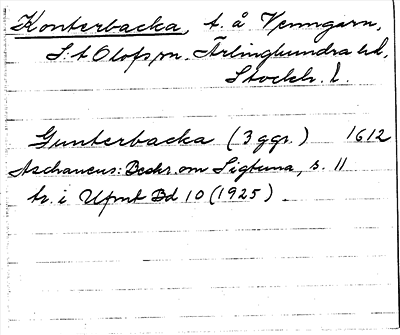 Konterbacka, t. å Venngarn,
S:t Olofs sn. Ärlinghundra hd,
Stockh. l.
Gunterbacka (3 ggr.) 1612
Aschaneus: Beskr. om Sigtuna, s. 11
tr. i Upmt Bd 10 (1925).